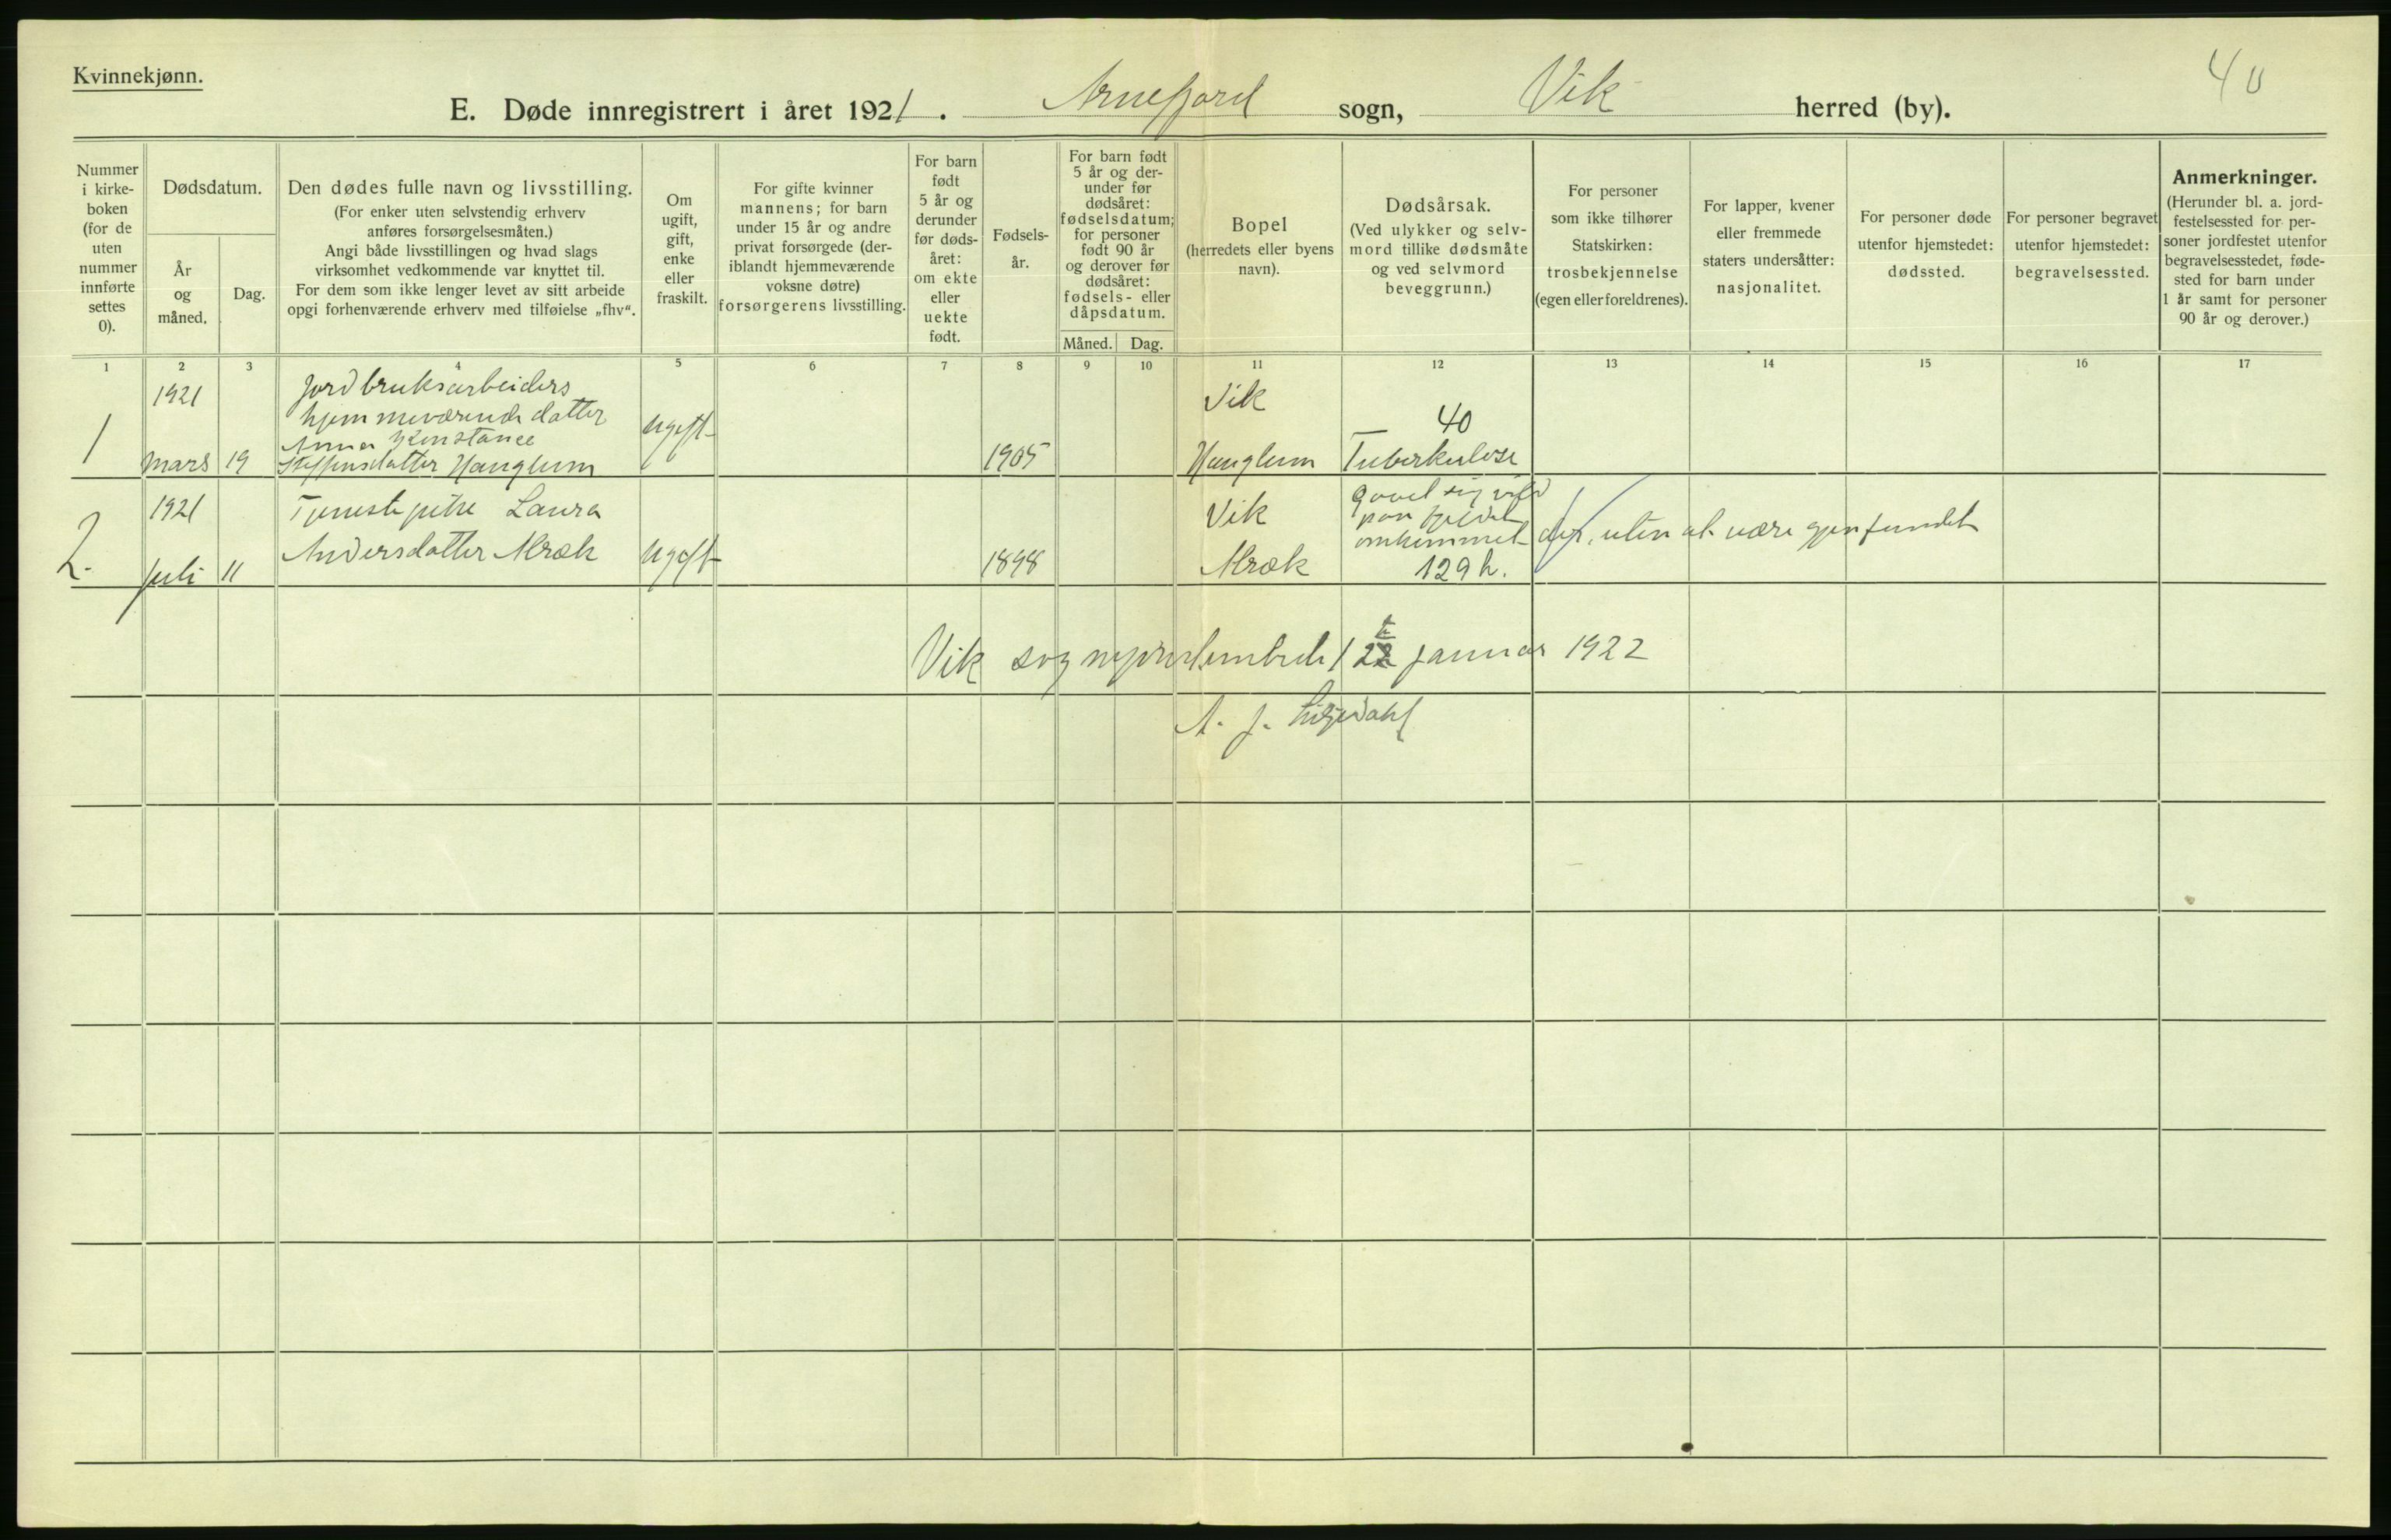 Kvinnekjønn.
40
E. Døde innregistrert i året 1921. Arnefjord sogn, Vik herred (by).
Nummer i kirke- boken (for de uten nummer innførte settes 0).
Dødsdatum.
År og måned.
Dag.
Den dødes fulle navn og livsstilling.
(For enker uten selvstendig erhverv
anføres forsørgelsesmåten.)
Angi både livsstillingen og hvad slags
virksomhet vedkommende var knyttet til.
For dem som ikke lenger levet av sitt arbeide
opgi forhenværende erhverv med tilføielse „fhv“.
Om ugift, gift, enke eller fraskilt.
For gifte kvinner
mannens; for barn
under 15 år og andre
privat forsørgede (der-
iblandt hjemmeværende
voksne døtre)
forsørgerens livsstilling.
For barn født 5 år og derunder før døds- året: om ekte eller uekte født.
Fødsels- år.
For barn født
5 år og der-
under før
dødsåret:
fødselsdatum;
for personer
født 90 år
og derover før
dødsåret:
fødsels- eller
dåpsdatum.
Måned. Dag.
Bopel
(herredets eller byens
navn).
Dødsårsak.
(Ved ulykker og selv-
mord tillike dødsmåte
og ved selvmord
beveggrunn.)
For personer
som ikke tilhører
Statskirken:
trosbekjennelse
(egen eller foreldrenes).
For lapper, kvener
eller fremmede
staters undersåtter:
nasjonalitet.
For personer døde
utenfor hjemstedet:
dødssted.
For personer begravet
utenfor hjemstedet:
begravelsessted.
Anmerkninger.
(Herunder bl. a. jord-
festelsessted for per-
soner jordfestet utenfor
begravelsesstedet, føde-
sted for barn under
1 år samt for personer
90 år og derover.)
1 2 3 4 5 6 7 8 9 10 11 12 13 14 15 16 17
1
1921
mars 19
Jordbruksarbeiders
hjemmeværende datter
Anna Konstance
Steffensdatter Hanglum
ugift
1905
Vik
Hanglum
40
Tuberkulose
2.
1921
juli 11
Tjenestepike Laura
Andersdatter Nræk
ugift
1898
Vik
Nræk
gaael sig vild
paa fjeldet
omkommet der, uten at være gjenfundet
129 h.
Vik sogneprestembede 22 januar 1922
A. J. Liljedahl